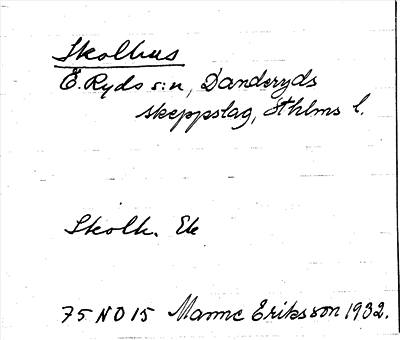 Skolhus
Ö. Ryds s:n, Danderyds
skeppslag, Sthlms l.
Skolk. Ek
75 NO 15 Manne Eriksson 1932.